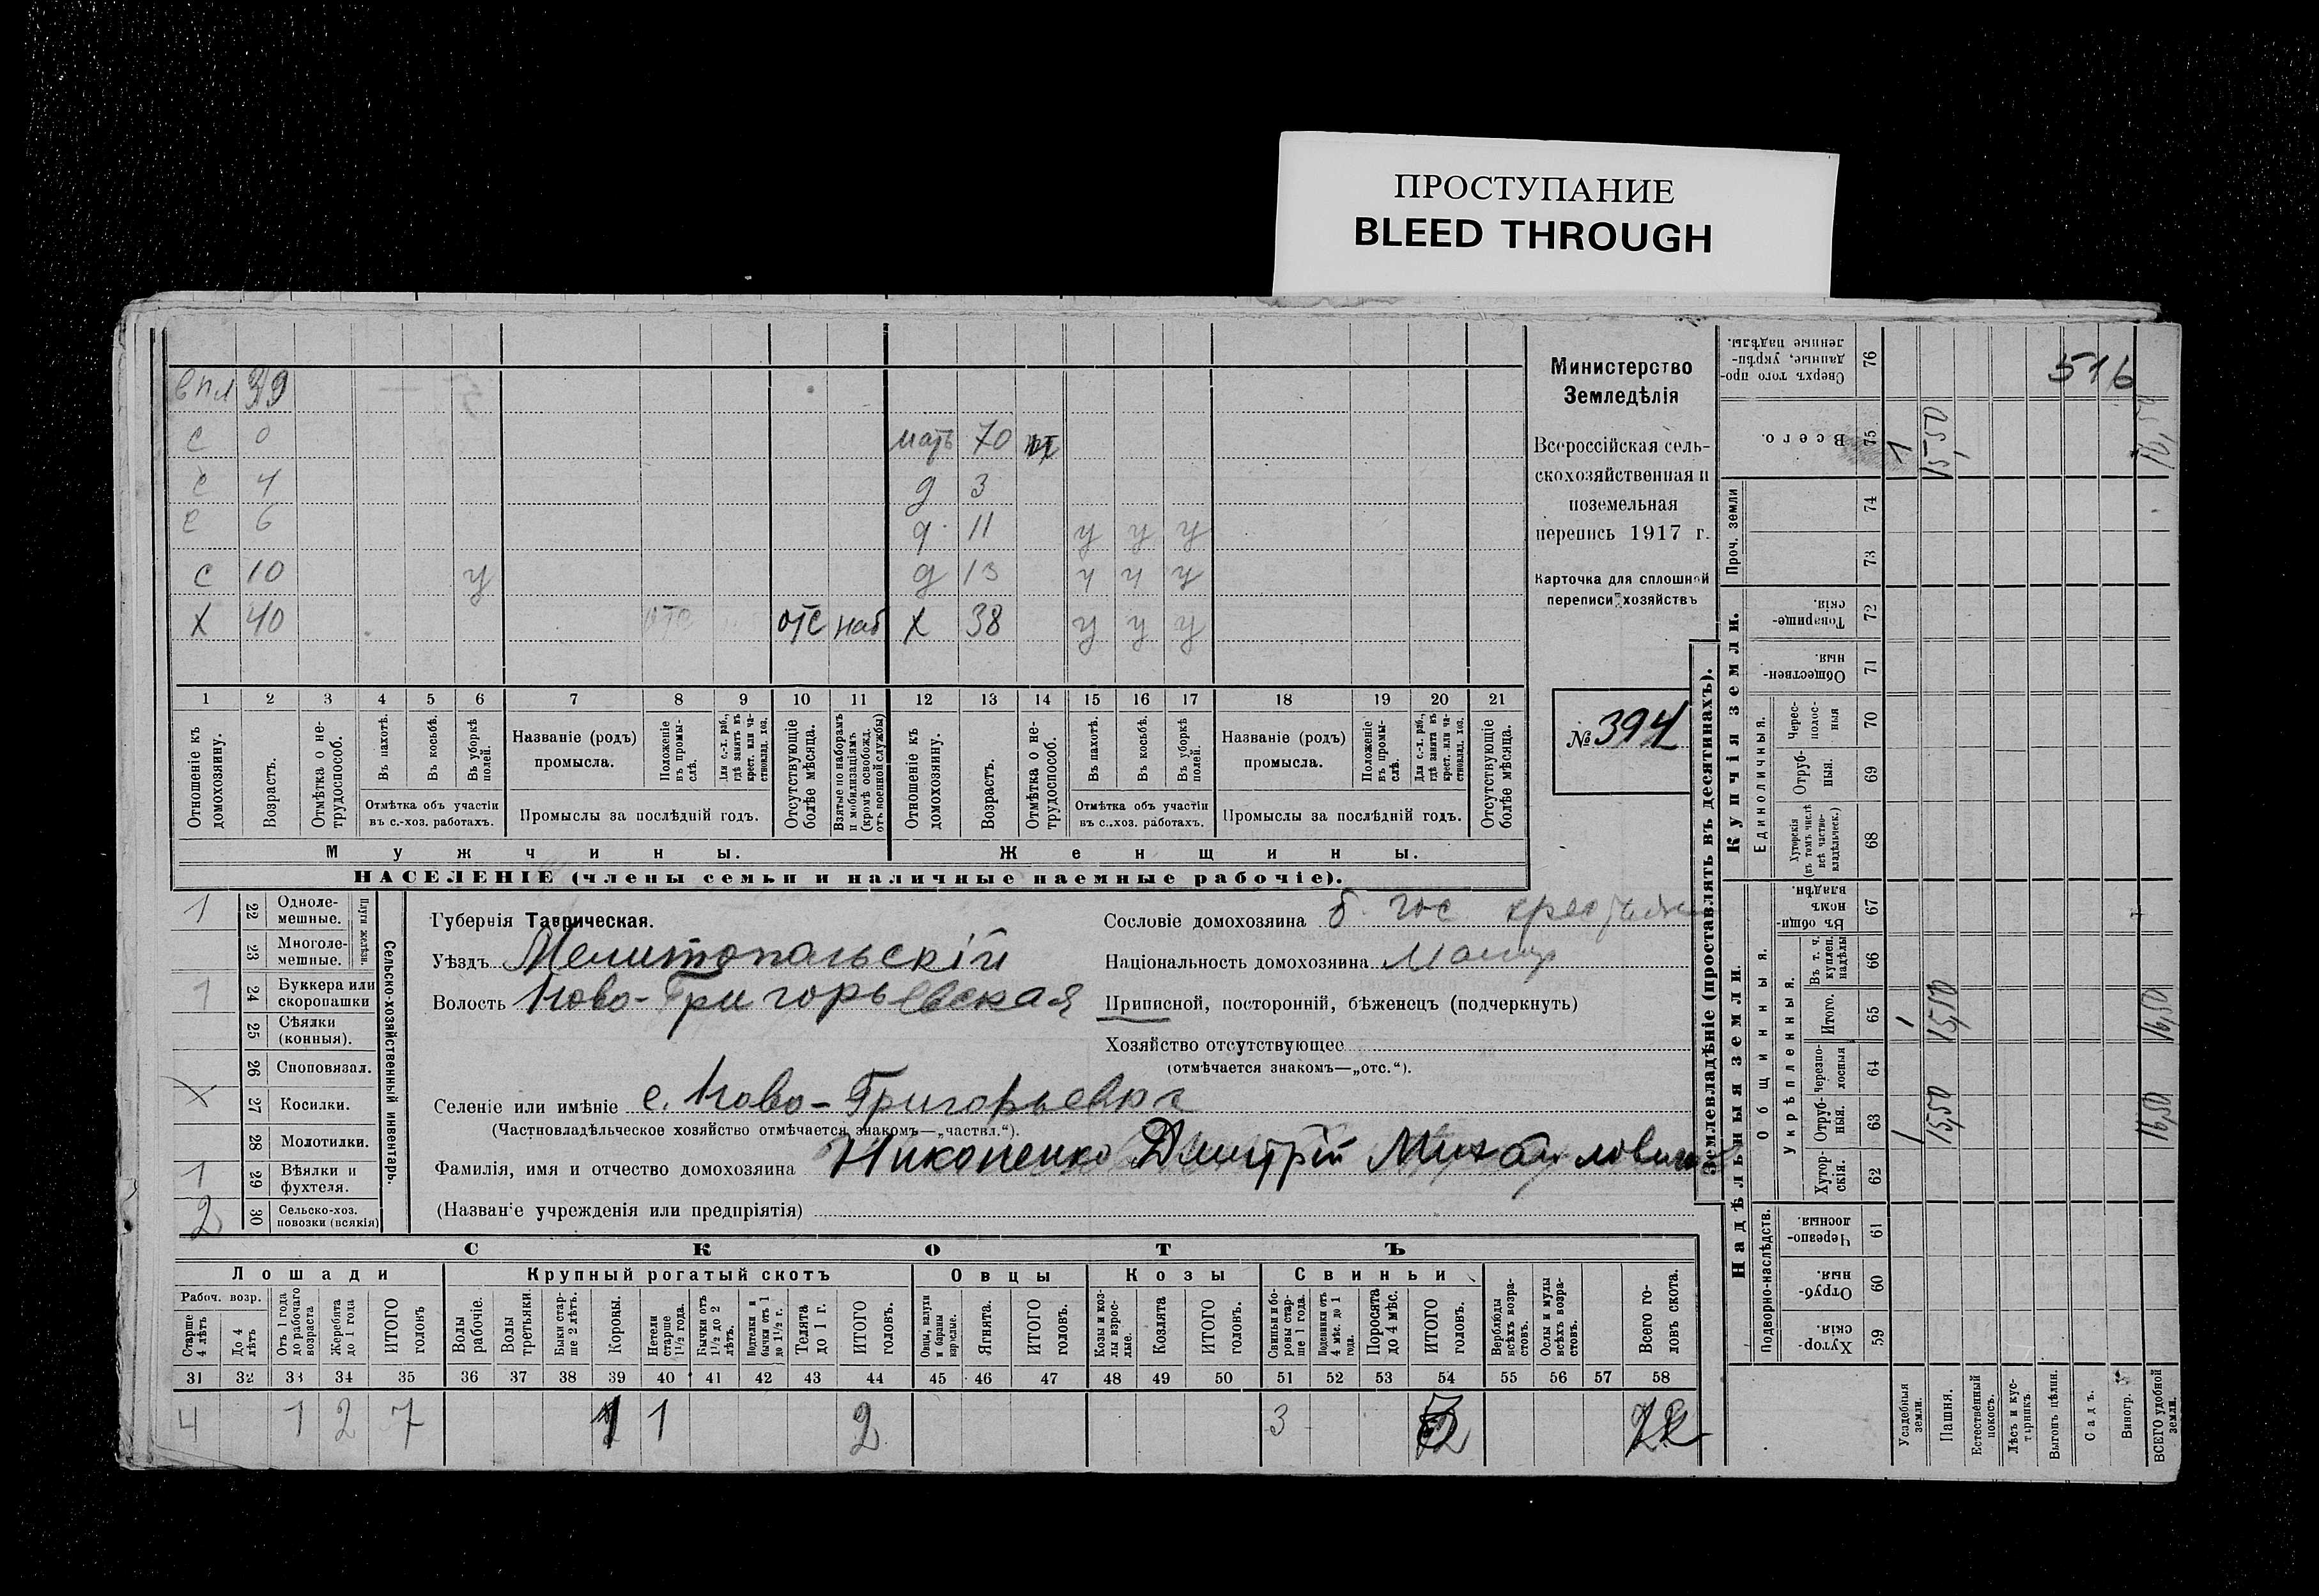 ПРОСТУПАНИЕ
BLEED THROUGH
впл 39
с 0 мать 70
с 4 д 3
с 6 д. 11 у у у
с 10 у д 13 у у у
х 40 отс отс наб х 38 у у у
1 2 3 4 5 6 7 8 9 10 11 12 13 14 15 16 17 18 19 20 21
Отношеніе къ домохозяину.
Возрастъ.
Отмѣтка о не-трудоспособ.
Въ пахотѣ.
Въ косьбѣ.
Въ уборкѣ полей.
Отмѣтка объ участіи
въ с.-хоз. работахъ.
Названіе (родъ)
промысла.
Положеніе въ промы-слѣ.
Для с.-х. раб., гдѣ занятъ въ крест. или ча-стновлад. хоз.
Промыслы за послѣдній годъ.
Отсутствующіе болѣе мѣсяца.
Взятые по наборамъ и мобилизаціямъ (кромѣ освобожд. отъ военной службы)
Отношеніе къ домохозяину.
Возрастъ.
Отмѣтка о не-трудоспособ.
Въ пахотѣ.
Въ косьбѣ.
Въ уборкѣ полей.
Отмѣтка объ участіи
въ с.-хоз. работахъ.
Названіе (родъ)
промысла.
Положеніе въ промы-слѣ.
Для с.-х. раб., гдѣ занята въ крест. или ча-стновлад. хоз.
Промыслы за послѣдній годъ.
Отсутствующіе болѣе мѣсяца.
Мужчины.
Женщины.
НАСЕЛЕНІЕ (члены семьи и наличные наемные рабочіе).
Министерство
Земледѣлія
Всероссійская сель-
скохозяйственная и
поземельная
перепись 1917 г.
Карточка для сплошной
переписи хозяйствъ
№ 394
1 22 Одноле-мешные.
23 Многоле-мешные.
Плуги желѣзн.
1 24 Буккера или скоропашки
25 Сѣялки (конныя).
26 Сноповязал.
х 27 Косилки.
28 Молотилки.
1 29 Вѣялки и фухтеля.
2 30 Сельско-хоз. повозки (всякія)
Сельско-хозяйственный инвентарь.
Губернія Таврическая.
Уѣздъ Мелитопольскій
Волость Ново-Григорьевская
Селеніе или имѣніе с. Ново-Григорьевка
(Частновладѣльческое хозяйство отмѣчается знакомъ—„частвл.“).
Фамилія, имя и отчество домохозяина Никоненко Дмитрій Михайлович
(Названіе учрежденія или предпріятія)
Сословіе домохозяина б. гос крестьян
Національность домохозяина Малор
Приписной, посторонній, бѣженецъ (подчеркнуть)
Хозяйство отсутствующее
(отмѣчается знакомъ—„отс.“).
СКОТЪ
Лошади
Крупный рогатый скотъ
Овцы
Козы
Свиньи
Рабоч. возр.
Старше 4 лѣтъ
До 4 лѣтъ
Отъ 1 года до рабочаго возраста
Жеребята до 1 года
ИТОГО головъ
Волы рабочіе.
Волы третьяки.
Быки стар-ше 2 лѣтъ.
Коровы.
Нетели старше 1½ года.
Бычки отъ 1½ до 2 лѣтъ.
Подтелки и бычки отъ 1 до 1½ г.
Телята до 1 г.
ИТОГО головъ.
Овцы, валухи и бараны взрослые.
Ягнята.
ИТОГО головъ.
Козы и коз-лы взрос-лые.
Козлята
ИТОГО головъ.
Свиньи и бо-ровы стар-ше 1 года.
Подсвинки отъ 4 мѣс. до 1 года.
Поросята до 4 мѣс.
ИТОГО головъ.
Верблюды всѣхъ возра-стовъ.
Ослы и мулы всѣхъ возра-стовъ.
Всего го-ловъ скота.
31 32 33 34 35 36 37 38 39 40 41 42 43 44 45 46 47 48 49 50 51 52 53 54 55 56 57 58
4 1 2 7 1 1 2 3
Землевладѣніе (проставлять въ десятинахъ).
Надѣльныя земли.
Купчія земли.
Проч. земли
Подворно-наслѣдств.
Общинныя.
Укрѣпленныя.
Единоличныя.
Хутор-скія. 59
Отруб-ныя. 60
Черезпо-лосныя 61
Хутор-скія. 62
Отруб-ныя. 63
Черезпо-лосныя 64
Итого. 65
Въ т. ч. куплен. надѣлы 66
Въ общин-номъ владѣн. 67
Хуторскія (въ томъ числѣ всѣ частно-владѣльческ.) 68
Отруб-ныя. 69
Черес-полос-ныя 70
Обществен-ныя. 71
Товарище-скія. 72
73
74
Всего. 75
Сверхъ того про-данные, укрѣп-ленные надѣлы. 76
Усадебныя земли. 1 1 1
Пашня. 15,50 15,50 15,50
Естественный покосъ.
Лѣсъ и кус-тарникъ.
Выгонъ цѣлин.
Садъ.
Виногр.
ВСЕГО удобной земли. 16,50 16,50 16,50
516